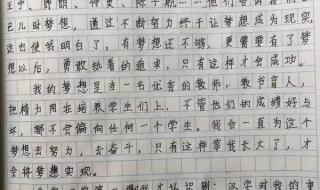 己儿时梦想，通过不断努力终于让梦想成为现实，
这也使我明白了，有梦想还不够，更需要有了梦
想以后，勇敢执着的追求，只有这样才会成功。
我的梦想是当一名优秀的教师，教书育人，
把精力用在培养学生们上，不管他们的成绩好与
坏，都不会偏向任何一个学生。我会一直为这个
梦想去努力，去奋斗，只有这样等我长大了，才
会将梦想实现。